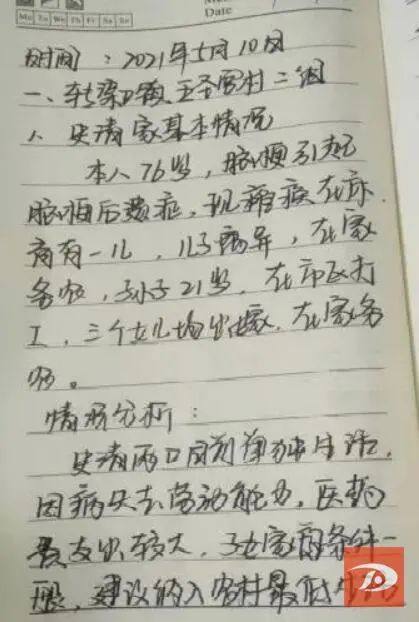 Mo Tu We Th Fr Sa Su
Date
时间：2021年5月10日
一、转梁卫镇王圣宫村二组
1、史清家基本情况
本人76岁，脑梗引起
脑梗后遗症，现瘫痪在床，
育有一儿，儿子离异，在家
务农，孙子21岁，在市区打
工，三个女儿均出嫁，在家务
农。
情形分析：
史清两口目前单独生活，
因病失去劳动能力，医药
费支出较大，子女家庭条件一
般，建议纳入农村最低生活